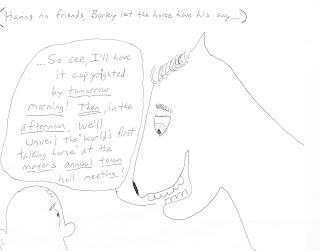 (Having no friends, Barley let the horse have his say...)
...So see, I'll have
it copyrighted
by tomorrow
morning! Then, in the
afternoon, we'll
unveil the "World's first
talking horse" at the
mayor's annual town
hall meeting.!